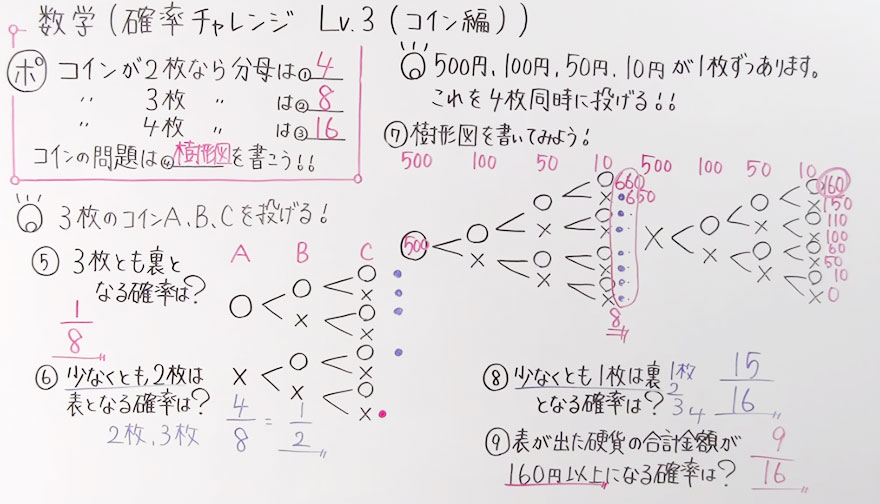 数学(確率チャレンジ Lv.3(コイン編))
ポ コインが2枚なら分母は①4
〃 3枚 〃 は②8
〃 4枚 〃 は③16
コインの問題は④樹形図を書こう!!
3枚のコインA、B、Cを投げる!
⑤ 3枚とも裏と
なる確率は?
1/8
A B C
○ ○ ○
×
× ○
×
× ○ ○
×
× ○
×
⑥ 少なくとも2枚は
表となる確率は?
2枚、3枚
4/8 = 1/2
500円、100円、50円、10円が1枚ずつあります。
これを4枚同時に投げる!!
⑦樹形図を書いてみよう!
500 100 50 10 500 100 50 10
500 ○ ○ ○ 660
× 650
× ○
×
× ○ ○
×
× ○
×
8
× ○ ○ ○ 160
× 150
× ○ 110
× 100
× ○ ○ 60
× 50
× ○ 10
× 0
⑧ 少なくとも1枚は裏
となる確率は?
1枚
2
3 4
15/16
⑨表が出た硬貨の合計金額が
160円以上になる確率は?
9/16